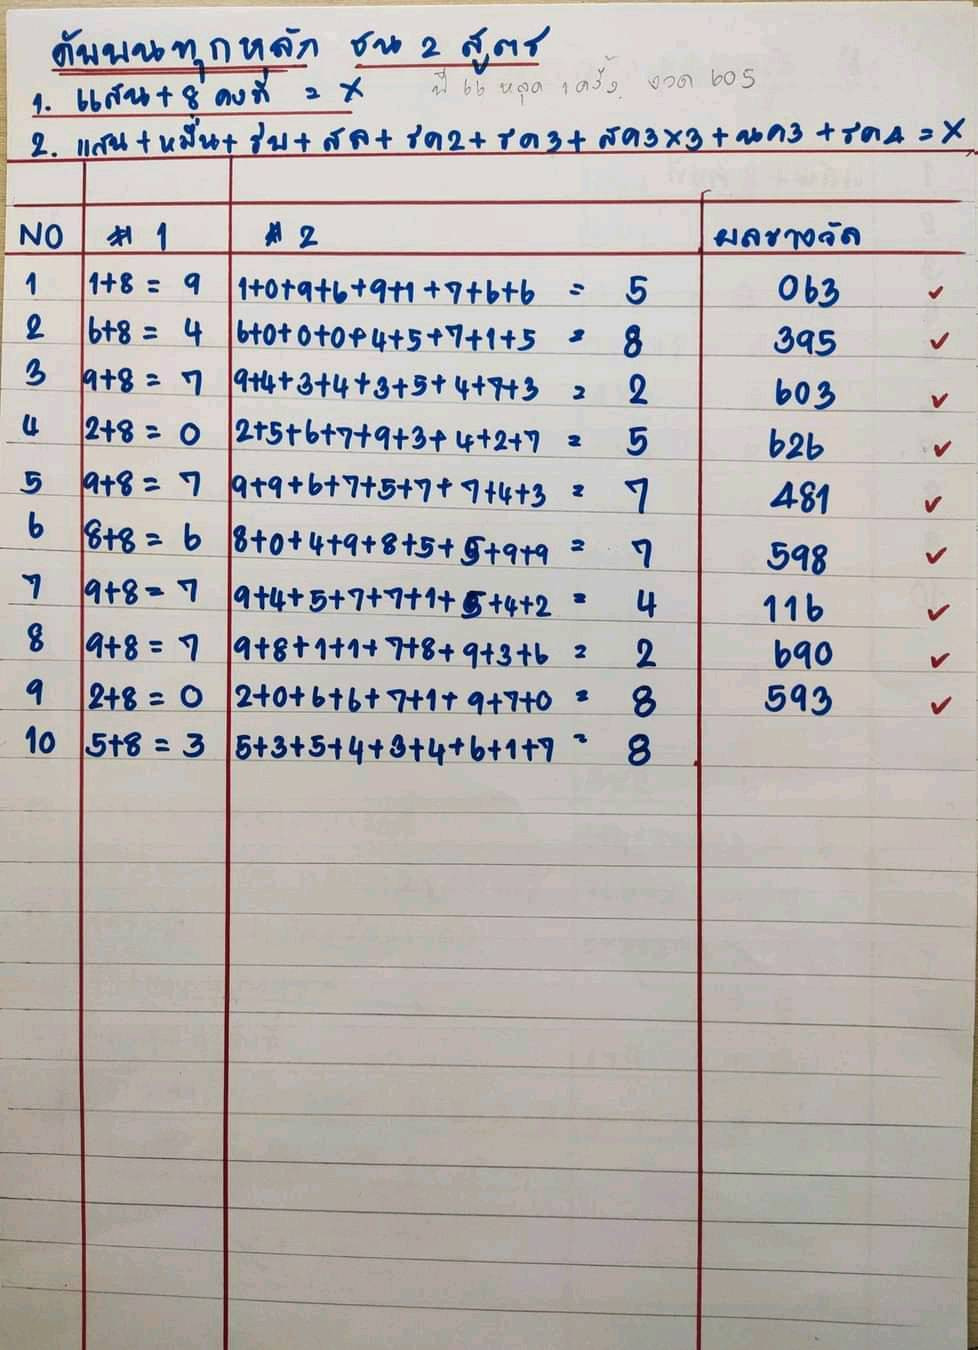 ดับบนทุกหลัก ชน 2 สูตร
1. แสน + 8 คงที่ = X ปี 66 หลุด 1 ครั้ง งวด 605
2. แสน + หมื่น + + สล + รด2 + รด3 + สด3x3 + นด3 + รด4 = X
NO # 1 # 2 ผลรางวัล
1 1+8 = 9 1+0+9+6+9+1+7+6+6 = 5 063 ✓
2 6+8 = 4 6+0+0+0+4+5+7+1+5 = 8 395 ✓
3 9+8 = 7 9+4+3+4+3+5+4+7+3 = 2 603 ✓
4 2+8 = 0 2+5+6+7+9+3+4+2+7 = 5 626 ✓
5 9+8 = 7 9+9+6+7+5+7+7+4+3 = 7 481 ✓
6 8+8 = 6 8+0+4+9+8+5+5+9+9 = 7 598 ✓
7 9+8 = 7 9+4+5+7+7+1+5+4+2 = 4 116 ✓
8 9+8 = 7 9+8+1+1+7+8+9+3+6 = 2 690 ✓
9 2+8 = 0 2+0+6+6+7+1+9+7+0 = 8 593 ✓
10 5+8 = 3 5+3+5+4+3+4+6+1+7 = 8